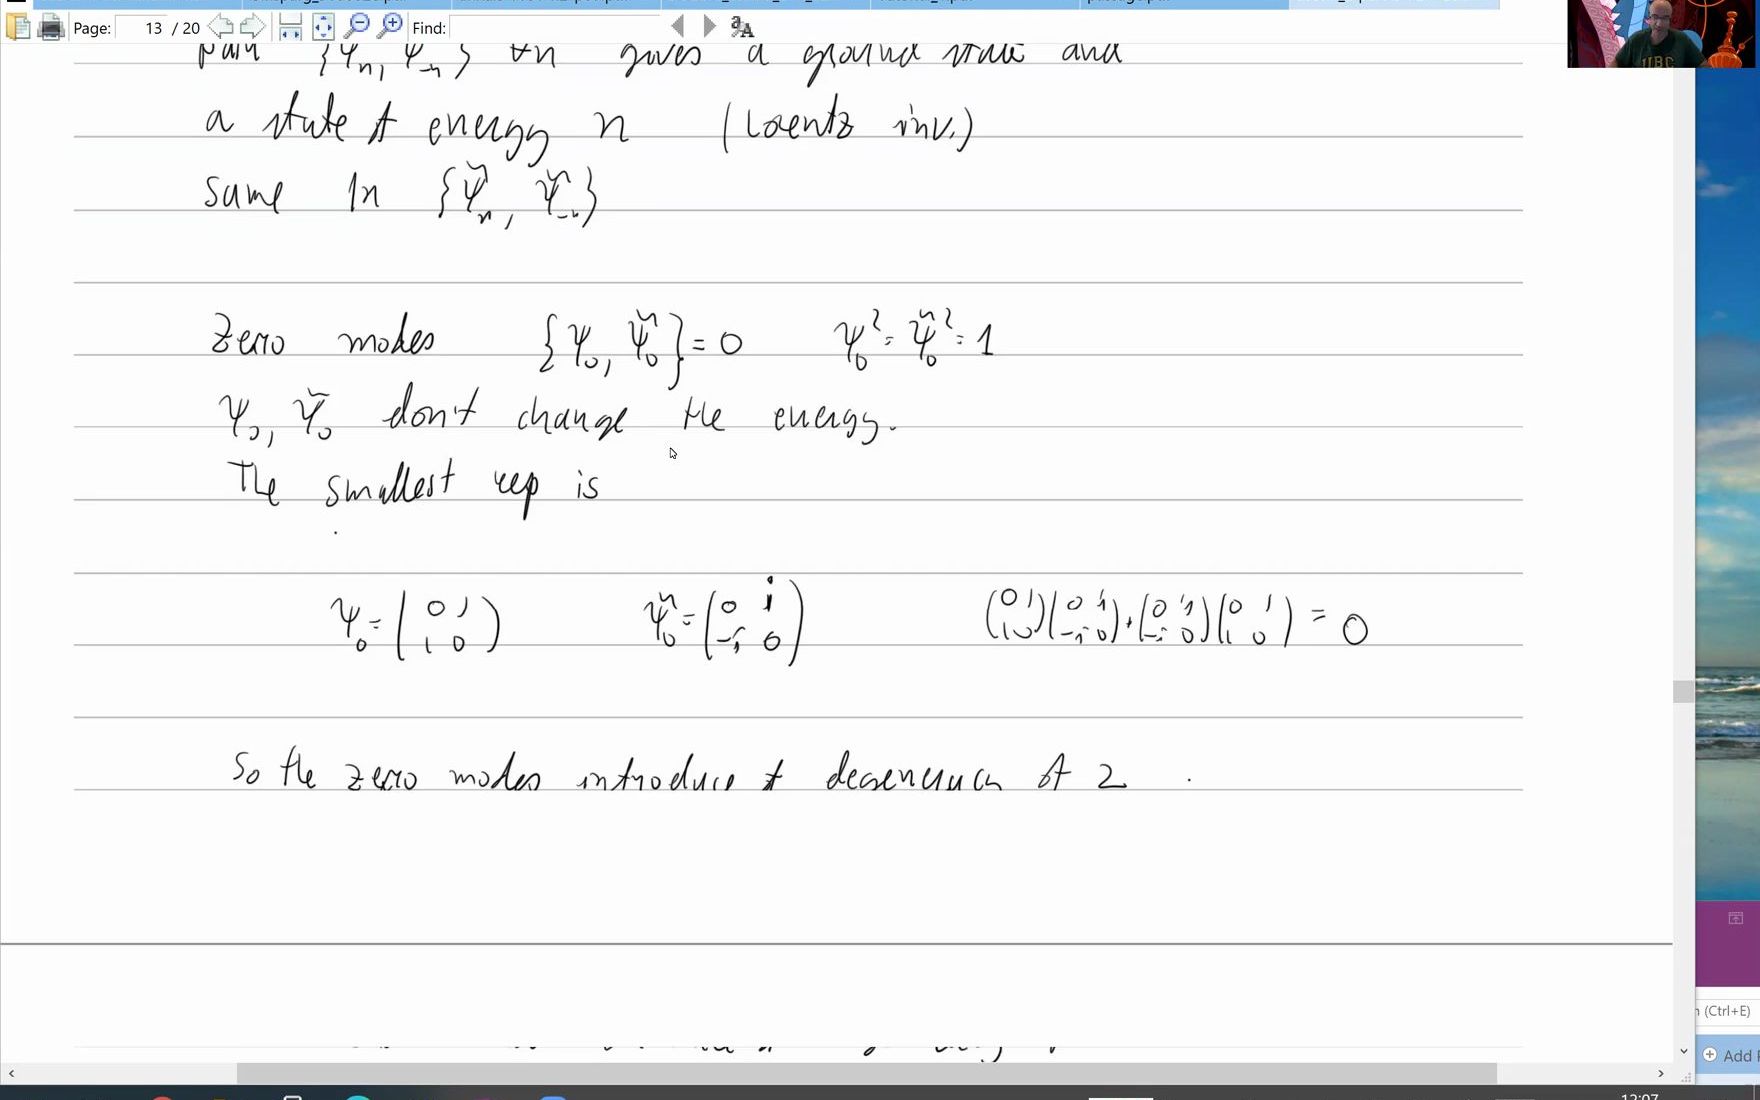 Page: 13 / 20 Find:
{ψn, ψ-n} ∀n gives a ground state and
a state of energy n (Lorentz inv.)
Same in {ψ̃n, ψ̃-n}
Zero modes {ψ0, ψ̃0} = 0 ψ0² = ψ̃0² = 1
ψ0, ψ̃0 don't change the energy.
The smallest rep is
ψ0 = (0 1 ; 1 0) ψ̃0 = (0 i ; -i 0) (0 1 ; 1 0)(0 i ; -i 0) + (0 i ; -i 0)(0 1 ; 1 0) = 0
So the zero modes introduce a degeneracy of 2.
UBC
(Ctrl+E)
Add
12:07